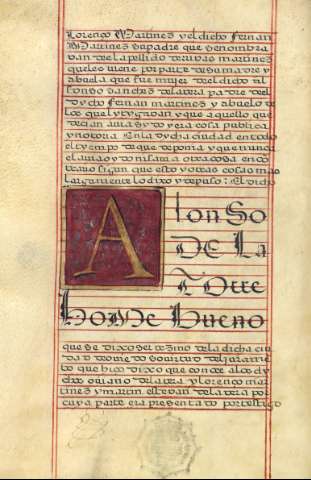 lorenço Martinez y el dicho fernan
Martinez su padre que se nonbra
van del apellido de rivas martinez
que les viene por parte de su madre y
abuela que fue mujer del dicho al
fonso sanchez de la vera padre del
dycho fernan martinez y abuelo de
los que lytygavan y que aquello que
decian avia sydo y era cosa publica
y notoria en la dycha ciudad en todo
el tyempo de que deponia y que nunca
el avia oydo ni savia otra cosa en con
trario sigun que esto y otras cosas mas
largamente lo dixo y depuso: El dicho
Alonso
DE La
Torre
home bueno
que se dixo ser vezino de la dicha ciu
dad
que hico dixo que conoce a los dy
chos
tinez y martin estevan de la vera por
cuya parte era presentado por testigo